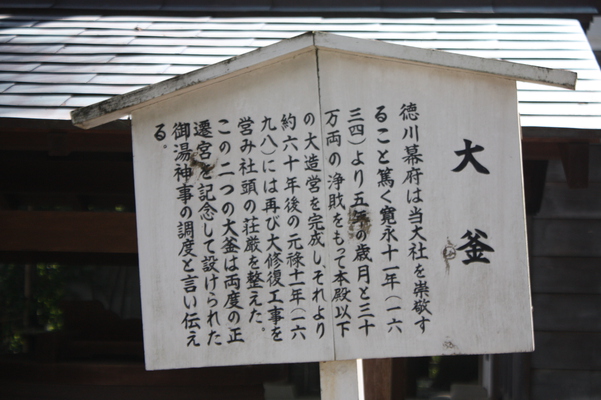 大釜
徳川幕府は当大社を崇敬す
ること篤く寛永十一年(一六
三四)より五年の歳月と三十
万両の浄財をもって本殿以下
の大造営を完成し、それより
約六十年後の元禄十一年(一六
九八)には再び大修復工事を
営み社頭の荘厳を整えた。
この二つの大釜は両度の正
遷宮を記念して設けられた
御湯神事の調度と言い伝え
る。